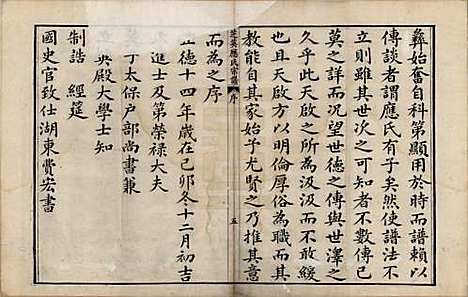 彝始奮自科第顯用於時而譜賴以
傳談者謂應氏有子矣然使譜法不
立則雖其世次之可知者不數傳已
莫之詳而况望世德之傳與世澤之
久乎此天啟之所為汲汲而不敢緩
也且天啟方以明倫厚俗為職而其
教能自其家始子尤賢之乃推其意
芝英應氏宗譜 序 五
而為之序
正德十四年歲在己卯冬十二月初吉
進士及第榮祿大夫
丁太保戶部尚書兼
英殿大學士知
制誥 經筵
國史官致仕湖東費宏書